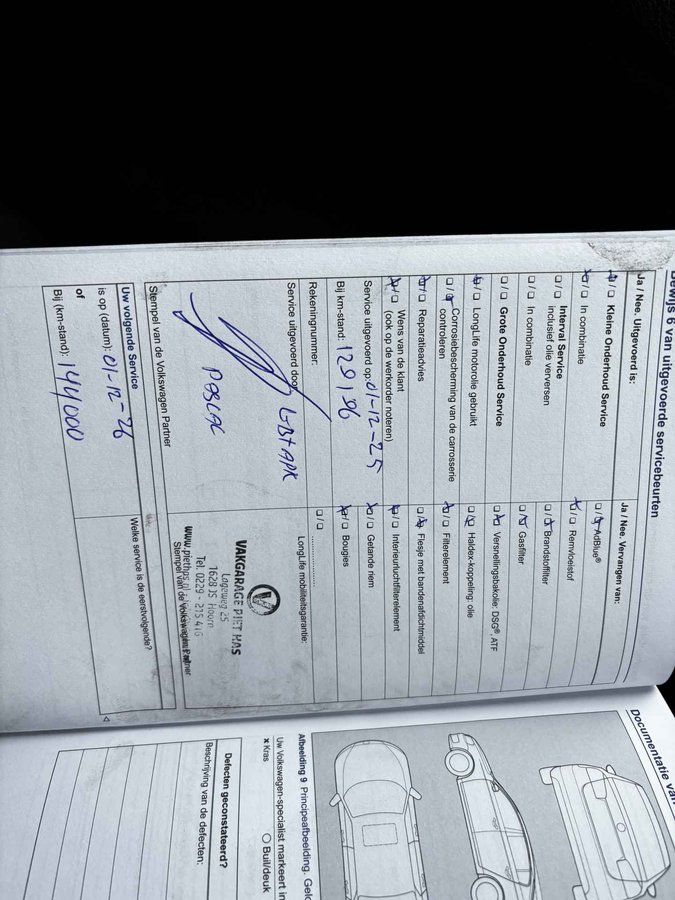 Bewijs 6 van uitgevoerde servicebeurten
Ja / Nee. Uitgevoerd is:
Kleine Onderhoud Service
In combinatie
Interval Service
inclusief olie verversen
In combinatie
Grote Onderhoud Service
LongLife motorolie gebruikt
Corrosiebescherming van de carrosserie
controleren
Reparatieadvies
Wens van de klant
(ook op de werkorder noteren)
Service uitgevoerd op: 01-12-25
Bij km-stand: 129196
Rekeningnummer:
Service uitgevoerd door:
GB+APK
Stempel van de Volkswagen Partner
Uw volgende Service
is op (datum): 01-12-26
of
Bij (km-stand): 144000
Ja / Nee. Vervangen van:
AdBlue®
Remvloeistof
Brandstoffilter
Gasfilter
Versnellingsbakolie: DSG®, ATF
Haldex-koppeling: olie
Filterelement
Flesje met bandenafdichtmiddel
Interieurluchtfilterelement
Getande riem
Bougies
LongLife mobiliteitsgarantie:
VAKGARAGE PIET HAS
Logeweg 25
1628 JS Hoorn
Tel. 0229 - 215 416
Stempel van de Volkswagen Partner
Welke service is de eerstvolgende?
Documentatie van
Afbeelding 9 Principeafbeelding.
Uw Volkswagen-specialist markeert in
x Kras
O Buil/deuk
Defecten geconstateerd?
Beschrijving van de defecten: